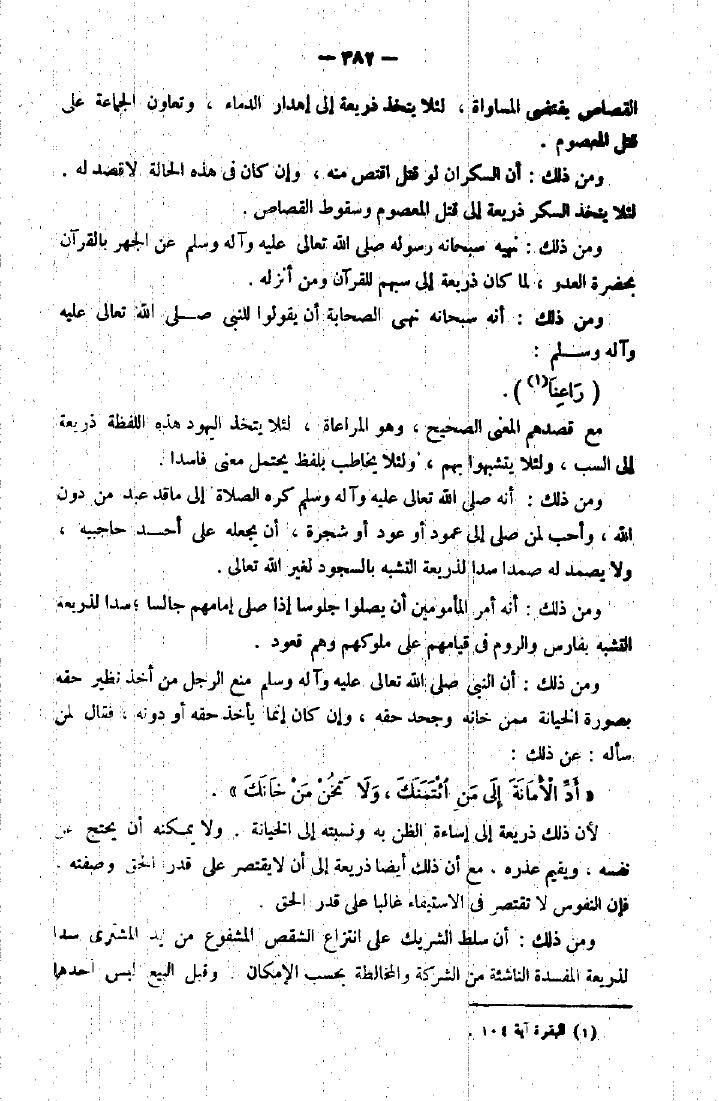 — ٣٨٢ —
القصاص يقتضى المساواة ، لئلا يتخذ ذريعة إلى إهدار الدماء ، وتعاون الجماعة على
قتل المعصوم .
ومن ذلك : أن السكران لو قتل اقتص منه ، وإن كان فى هذه الحالة لاقصد له .
لئلا يتخذ السكر ذريعة إلى قتل المعصوم وسقوط القصاص .
ومن ذلك : نهيه سبحانه رسوله صلى الله تعالى عليه وآله وسلم عن الجهر بالقرآن
بحضرة العدو ، لما كان ذريعة إلى سبهم للقرآن ومن أنزله .
ومن ذلك : أنه سبحانه نهى الصحابة أن يقولوا للنبى صلى الله تعالى عليه
وآله وسلم :
( رَاعِنَا(١) ) .
مع قصدهم المعنى الصحيح ، وهو المراعاة ، لئلا يتخذ اليهود هذه اللفظة ذريعة
إلى السب ، ولئلا يتشبهوا بهم ، ولئلا يخاطب بلفظ يحتمل معنى فاسدا .
ومن ذلك : أنه صلى الله تعالى عليه وآله وسلم كره الصلاة إلى ماقد عبد من دون
الله ، وأحب لمن صلى إلى عمود أو عود أو شجرة ، أن يجعله على أحد حاجبيه ،
ولا يصمد له صمدا سدا لذريعة التشبه بالسجود لغير الله تعالى .
ومن ذلك : أنه أمر المأمومين أن يصلوا جلوسا إذا صلى إمامهم جالسا ؛ سدا لذريعة
التشبه بفارس والروم فى قيامهم على ملوكهم وهم قعود .
ومن ذلك : أن النبى صلى الله تعالى عليه وآله وسلم منع الرجل من أخذ نظير حقه
بصورة الخيانة ممن خانه وجحد حقه ، وإن كان إنما يأخذ حقه أو دونه ، فقال لمن
سأله : عن ذلك :
« أَدِّ الْأَمَانَةَ إِلَى مَنِ ائْتَمَنَكَ ، وَلَا تَخُنْ مَنْ خَانَكَ » .
لأن ذلك ذريعة إلى إساءة الظن به ونسبته إلى الخيانة . ولا يمكنه أن يحتج عن
نفسه ، ويقيم عذره . مع أن ذلك أيضا ذريعة إلى أن لايقتصر على قدر الحق وصفته .
فإن النفوس لا تقتصر فى الاستيفاء غالبا على قدر الحق .
ومن ذلك : أن سلط الشريك على انتزاع الشقص المشفوع من يد المشترى سدا
لذريعة المفسدة الناشئة من الشركة والمخالطة بحسب الإمكان . وقبل البيع ليس أحدهما
(١) البقرة آية ١٠٤ .